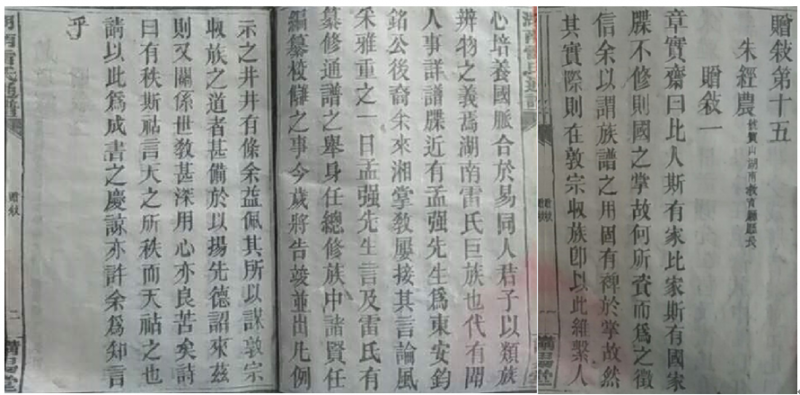 贈敘第十五
朱經農 前寶山湖南教育廳廳長
贈敘一
章實齋曰比人斯有家比家斯有國家
牒不修則國之掌故何所資而爲之徵
信余以謂族譜之用固有裨於掌故然
其實際則在敦宗收族卽以此維繫人
贈敘
一
心培養國脈合於易同人君子以類族
辨物之義焉湖南雷氏巨族也代有聞
人事詳譜牒近有孟强先生爲東安鈞
銘公後裔余來湘掌敎屢接其言論風
采雅重之一日孟强先生言及雷氏有
纂修通譜之舉身任總修族中諸賢任
編纂校讎之事今歲將告竣並出凡例
湖南雷氏通譜
示之井井有條余益佩其所以謀敦宗
收族之道者甚備於以揚先德詔來茲
則又關係世敎甚深用心亦良苦矣詩
曰有秩斯祜言天之所秩而天祜之也
請以此爲成書之慶諒亦許余爲知言
乎
湖南雷氏通譜
贈敘
二